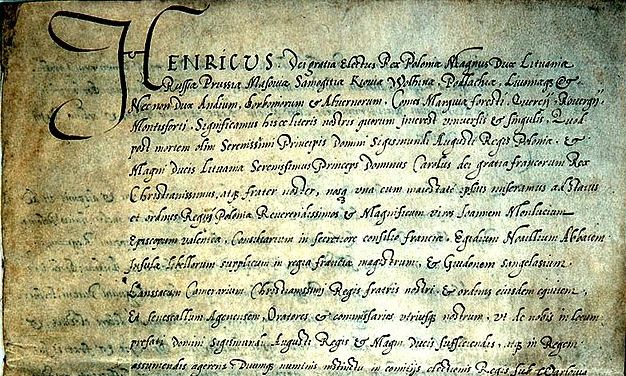 HENRICUS Dei gratia Electus Rex Poloniæ Magnus Dux Lituaniæ
Russiæ Prussiæ Masoviæ Samogitiæ Kioviæ Wolhiniæ, Podlachiæ, Livoniæq; &
Necnon Dux Andium, Borboniorum & Alvernorum, Comes Marchiæ foresti, Quercij, Rovergij
Montisfortij. Significamus hisce literis nostris quorum interest universis & singulis, Quod
post mortem olim Serenissimi Principis Domini Sigismundi Augusti Regis Poloniæ, &
Magni Ducis Lituaniæ Serenissimus Princeps Dominus Carolus dei gratia francorum Rex
Christianissimus, atq; frater noster, nosq; una cum maiestate ipsius miseramus ad Status
et ordines Regni Poloniæ Reverendissimos & Magnificum viros Ioannem Monlucium
Episcopum valentiæ, Consiliarium in secretiore consilio franciæ, Egidium Noallium Abbatem
Insulæ libellorum supplicum in regia franciæ magistrum, & Guidonem sangelasium
Lansacum Camerarium Christianissimi Regis fratris nostri, & ordinis eiusdem equitem,
Et senescallum Agenensem, Oratores & commissarios utriusq; nostrum, ut de nobis in locum
præfati domini Sigismundi Augusti Regis & Magni Ducis sufficiendis, atq; in Regem
assumendis agerent, Quumq; numinis instinctu in comitijs electionis Regis sub Varsovia